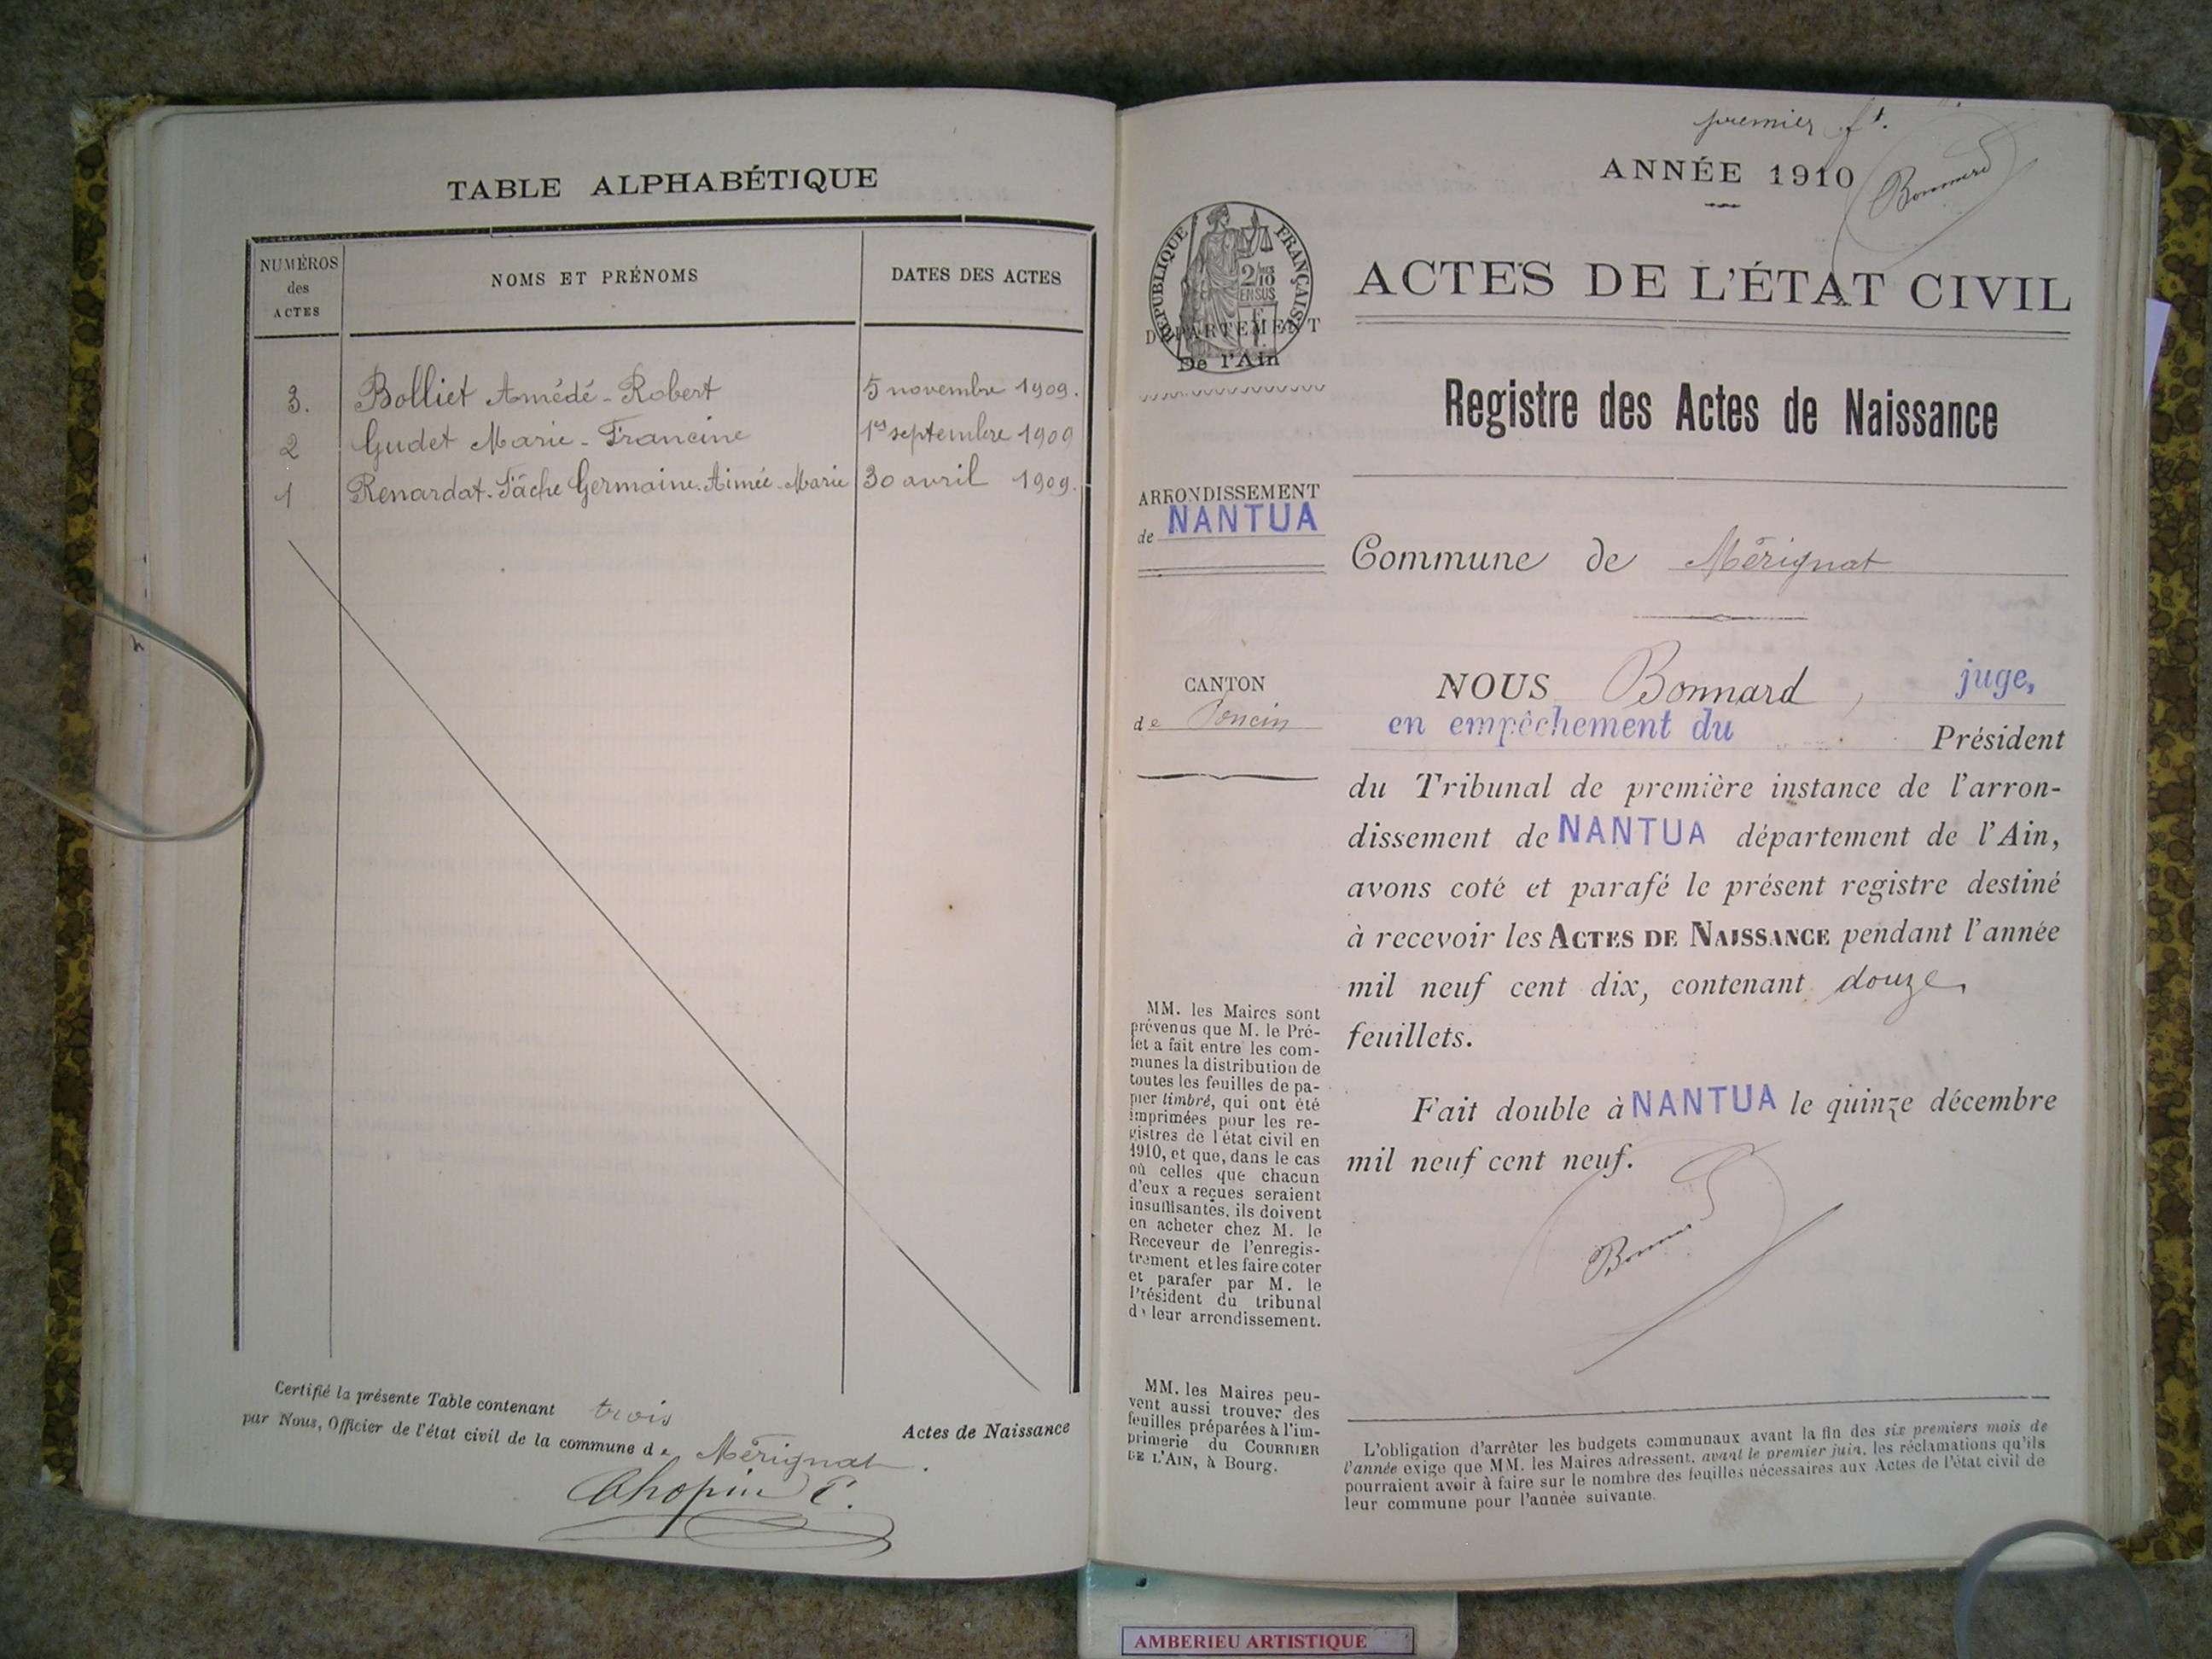 TABLE ALPHABÉTIQUE
NUMÉROS
des
ACTES
NOMS ET PRÉNOMS
DATES DES ACTES
3. Bolliet Amédé-Robert 5 novembre 1909.
2 Gudet Marie-Francine 1er septembre 1909
1 Renardat-Fâche Germaine-Aimée-Marie 30 avril 1909.
Certifié la présente Table contenant trois Actes de Naissance
par Nous, Officier de l'état civil de la commune de Mérignat.
Chopin
premier ft.
ANNÉE 1910
Bonnard
RÉPUBLIQUE FRANÇAISE
2/10
EN SUS
DÉPARTEMENT
De l'Ain
ACTES DE L'ÉTAT CIVIL
Registre des Actes de Naissance
ARRONDISSEMENT
de NANTUA
Commune de Mérignat
CANTON
de Poncin
NOUS Bonnard, juge,
en empêchement du Président
du Tribunal de première instance de l'arron-
dissement de NANTUA département de l'Ain,
avons coté et parafé le présent registre destiné
à recevoir les ACTES DE NAISSANCE pendant l'année
mil neuf cent dix, contenant douze
feuillets.
Fait double à NANTUA le quinze décembre
mil neuf cent neuf.
Bonnard
MM. les Maires sont
prévenus que M. le Pré-
fet a fait entre les com-
munes la distribution de
toutes les feuilles de pa-
pier timbré, qui ont été
imprimées pour les re-
gistres de l'état civil en
1910, et que, dans le cas
où celles que chacun
d'eux a reçues seraient
insuffisantes, ils doivent
en acheter chez M. le
Receveur de l'enregis-
trement et les faire coter
et parafer par M. le
Président du tribunal
de leur arrondissement.
MM. les Maires peu-
vent aussi trouver des
feuilles préparées à l'im-
primerie du COURRIER
DE L'AIN, à Bourg.
L'obligation d'arrêter les budgets communaux avant la fin des six premiers mois de
l'année exige que MM. les Maires adressent, avant le premier juin, les réclamations qu'ils
pourraient avoir à faire sur le nombre des feuilles nécessaires aux Actes de l'état civil de
leur commune pour l'année suivante.
AMBERIEU ARTISTIQUE